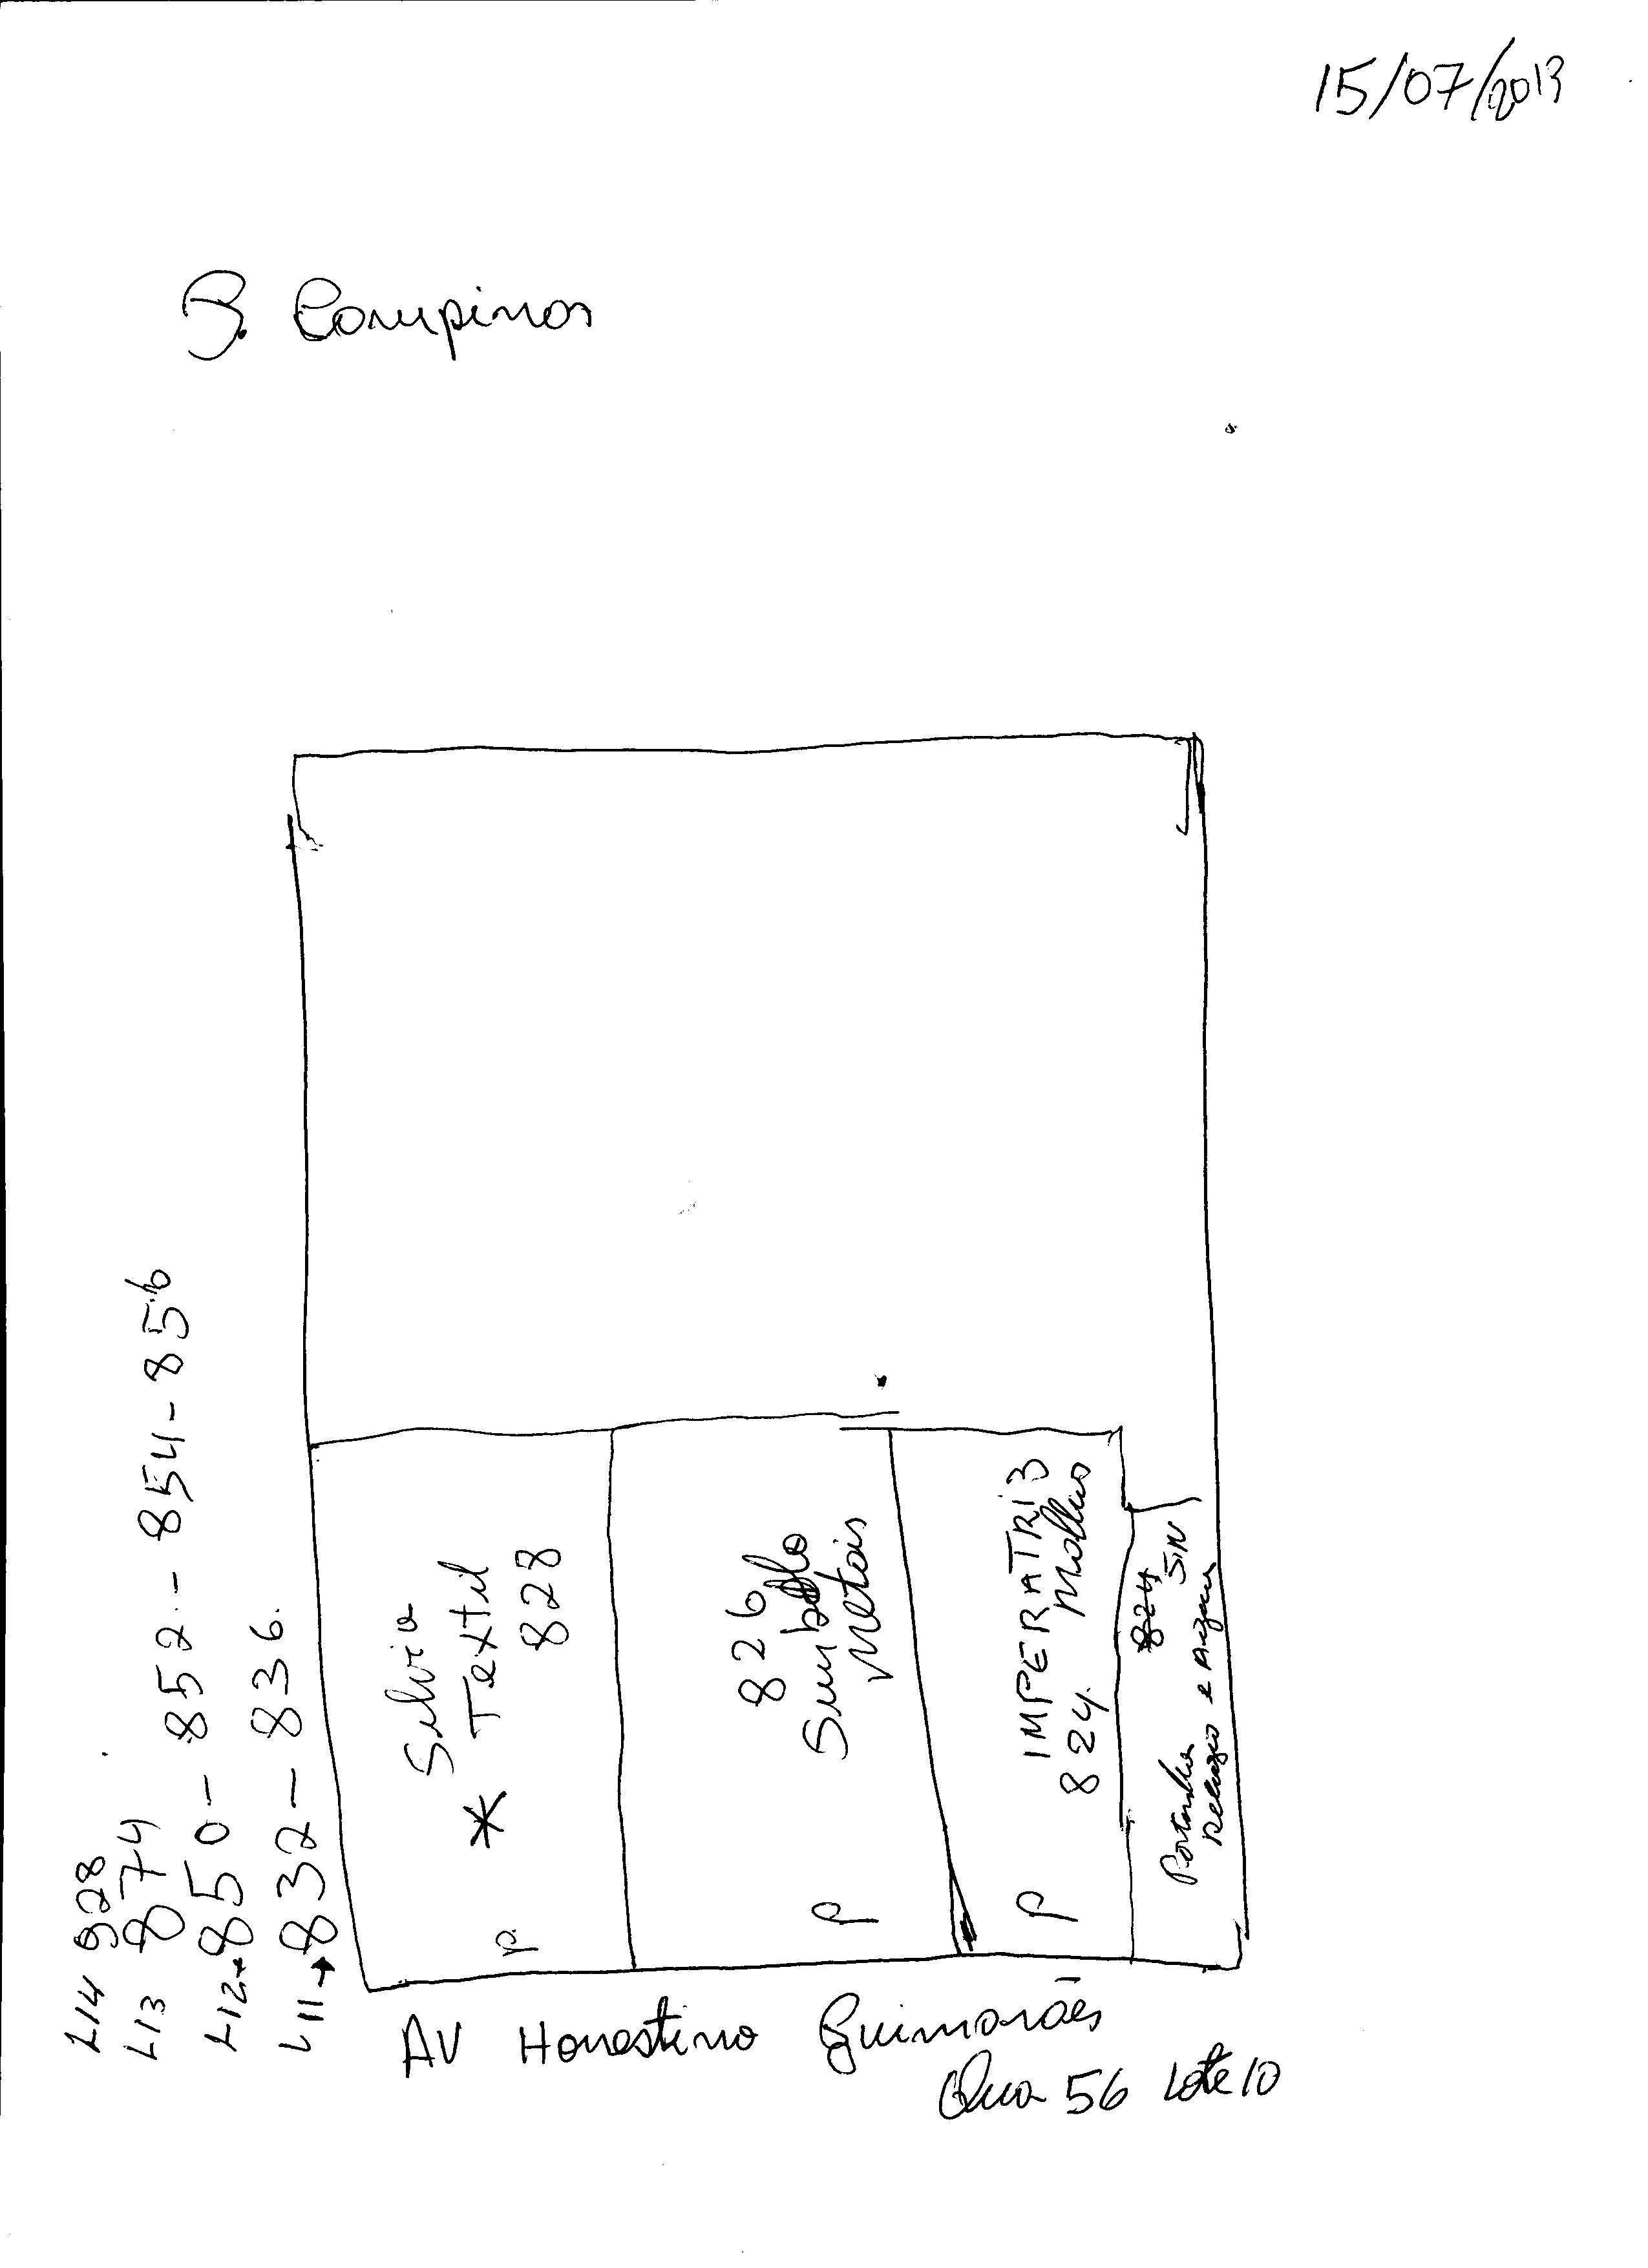 15/07/2013
B. Campinas
L14 928
L13 874
L12→850-852-854-856
L11→832-836.
Silvio
* Textil
828
P.
826
Simbolo
Metais
P
IMPERATRIZ
824. Malhas
P
824
S/N
Portinha
Relogio e
AV Honestino Guimarães
Qua 56 Lote 10